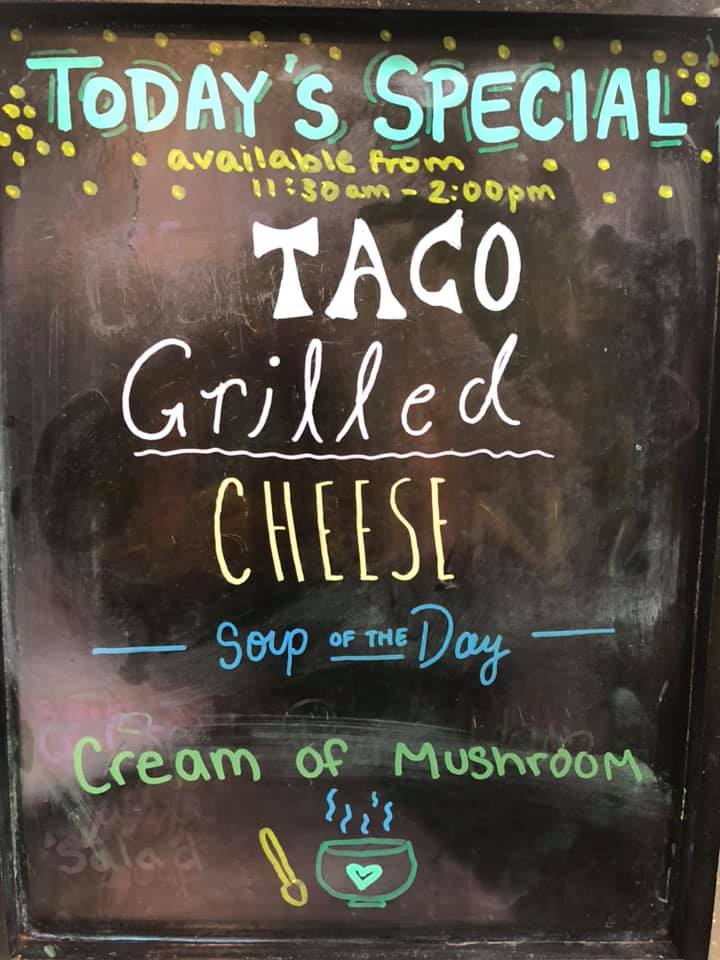 TODAY'S SPECIAL
available from
11:30am - 2:00pm
TACO
Grilled
CHEESE
Soup OF THE Day
Cream of Mushroom
Salad